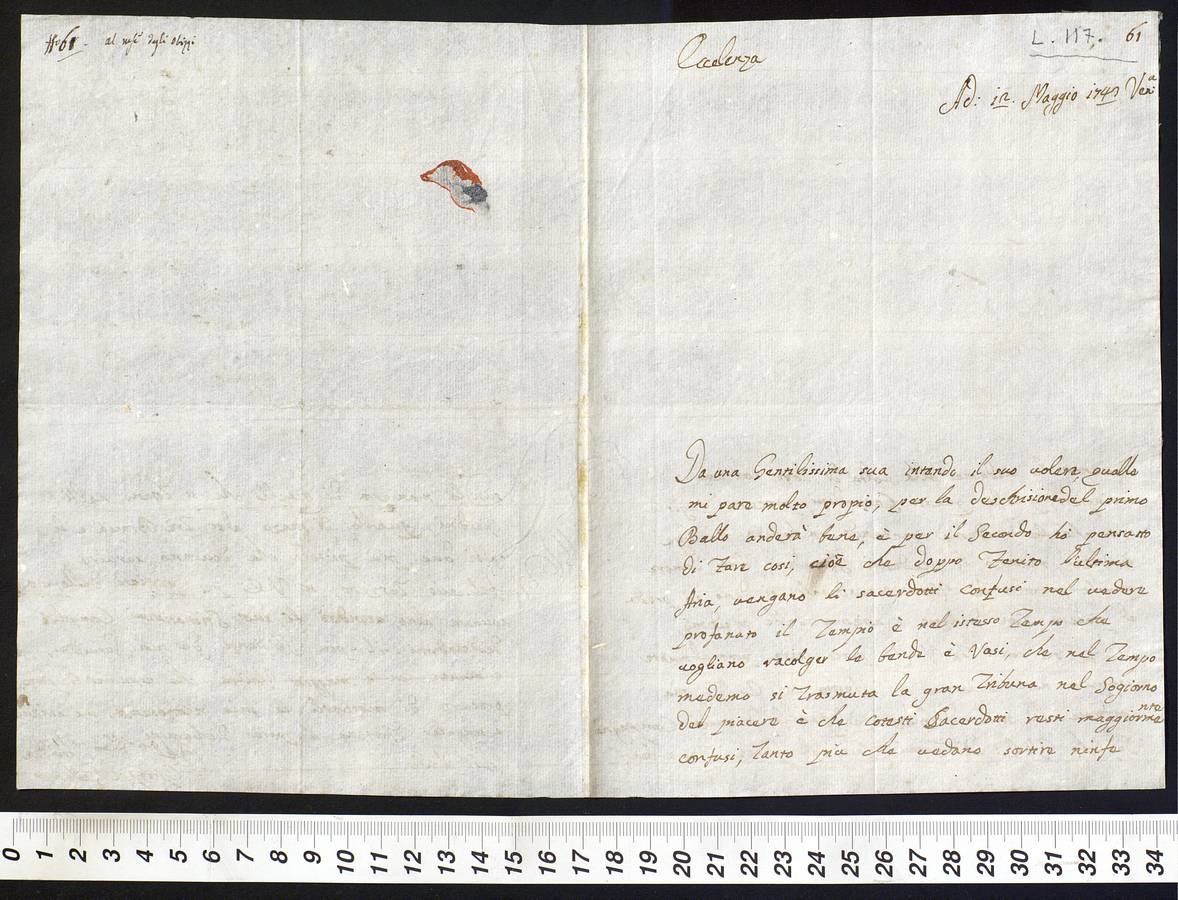 N. 61. al No. degli Obizzi
L. 117. 61
Eccelenza
Ad: 12. Maggio 1743 Ven.a
Da una Gentilissima sua intendo il suo volere, qualle
mi pare molto propio, per la deschrisione del primo
Ballo anderà bene, è per il Secondo hò pensatto
di fare cosi, cioè che doppo fenito l'ultima
Aria, vengano li sacerdotti confusi nel vedere
profanato il Tempio è nel istesso Tempo che
vogliano racolger le bende è Vasi, che nel Tempo
medemo si Trasmuta la gran Tribuna nel Sogiorno
del piacere è che cotesti Sacerdotti resti maggiormente
confusi, Tanto più che vedano sortire ninfe
0 1 2 3 4 5 6 7 8 9 10 11 12 13 14 15 16 17 18 19 20 21 22 23 24 25 26 27 28 29 30 31 32 33 34